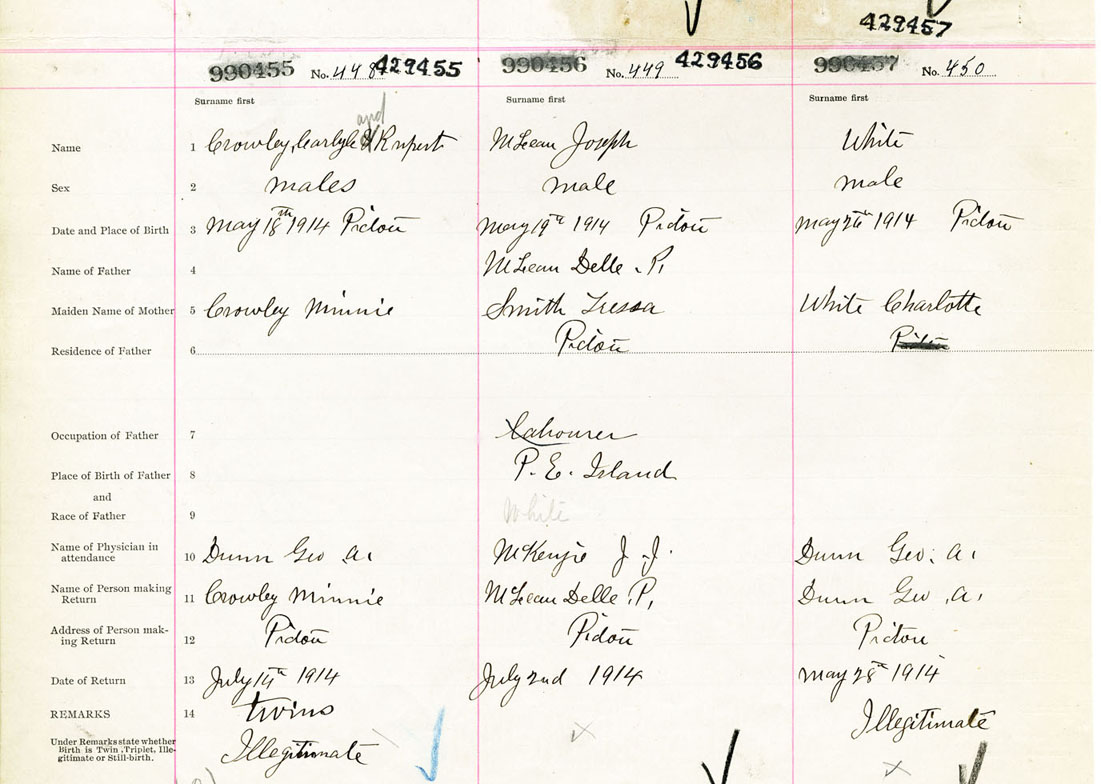 429457
990455 No. 448 429455 990456 No. 449 429456 990457 No. 450
Surname first Surname first Surname first
and
Name 1 Crowley, Carlyle & Rupert McLean Joseph White
Sex 2 males male male
Date and Place of Birth 3 May 18th 1914 Pictou May 19th 1914 Pictou May 26th 1914 Pictou
Name of Father 4 McLean Delle . P.
Maiden Name of Mother 5 Crowley Minnie Smith Tressa White Charlotte
Residence of Father 6 Pictou Pictou
Occupation of Father 7 Labourer
Place of Birth of Father 8 P. E. Island
and
Race of Father 9 White
Name of Physician in
attendance 10 Dunn Geo A. McKenzie J J. Dunn Geo. A.
Name of Person making
Return 11 Crowley Minnie McLean Delle . P. Dunn Geo . A.
Address of Person mak-
ing Return 12 Pictou Pictou Pictou
Date of Return 13 July 14th 1914 July 2nd 1914 May 28th 1914
REMARKS 14 twins Illegitimate
Under Remarks state whether
Birth is Twin, Triplet, Ille-
gitimate or Still-birth. Illegitimate